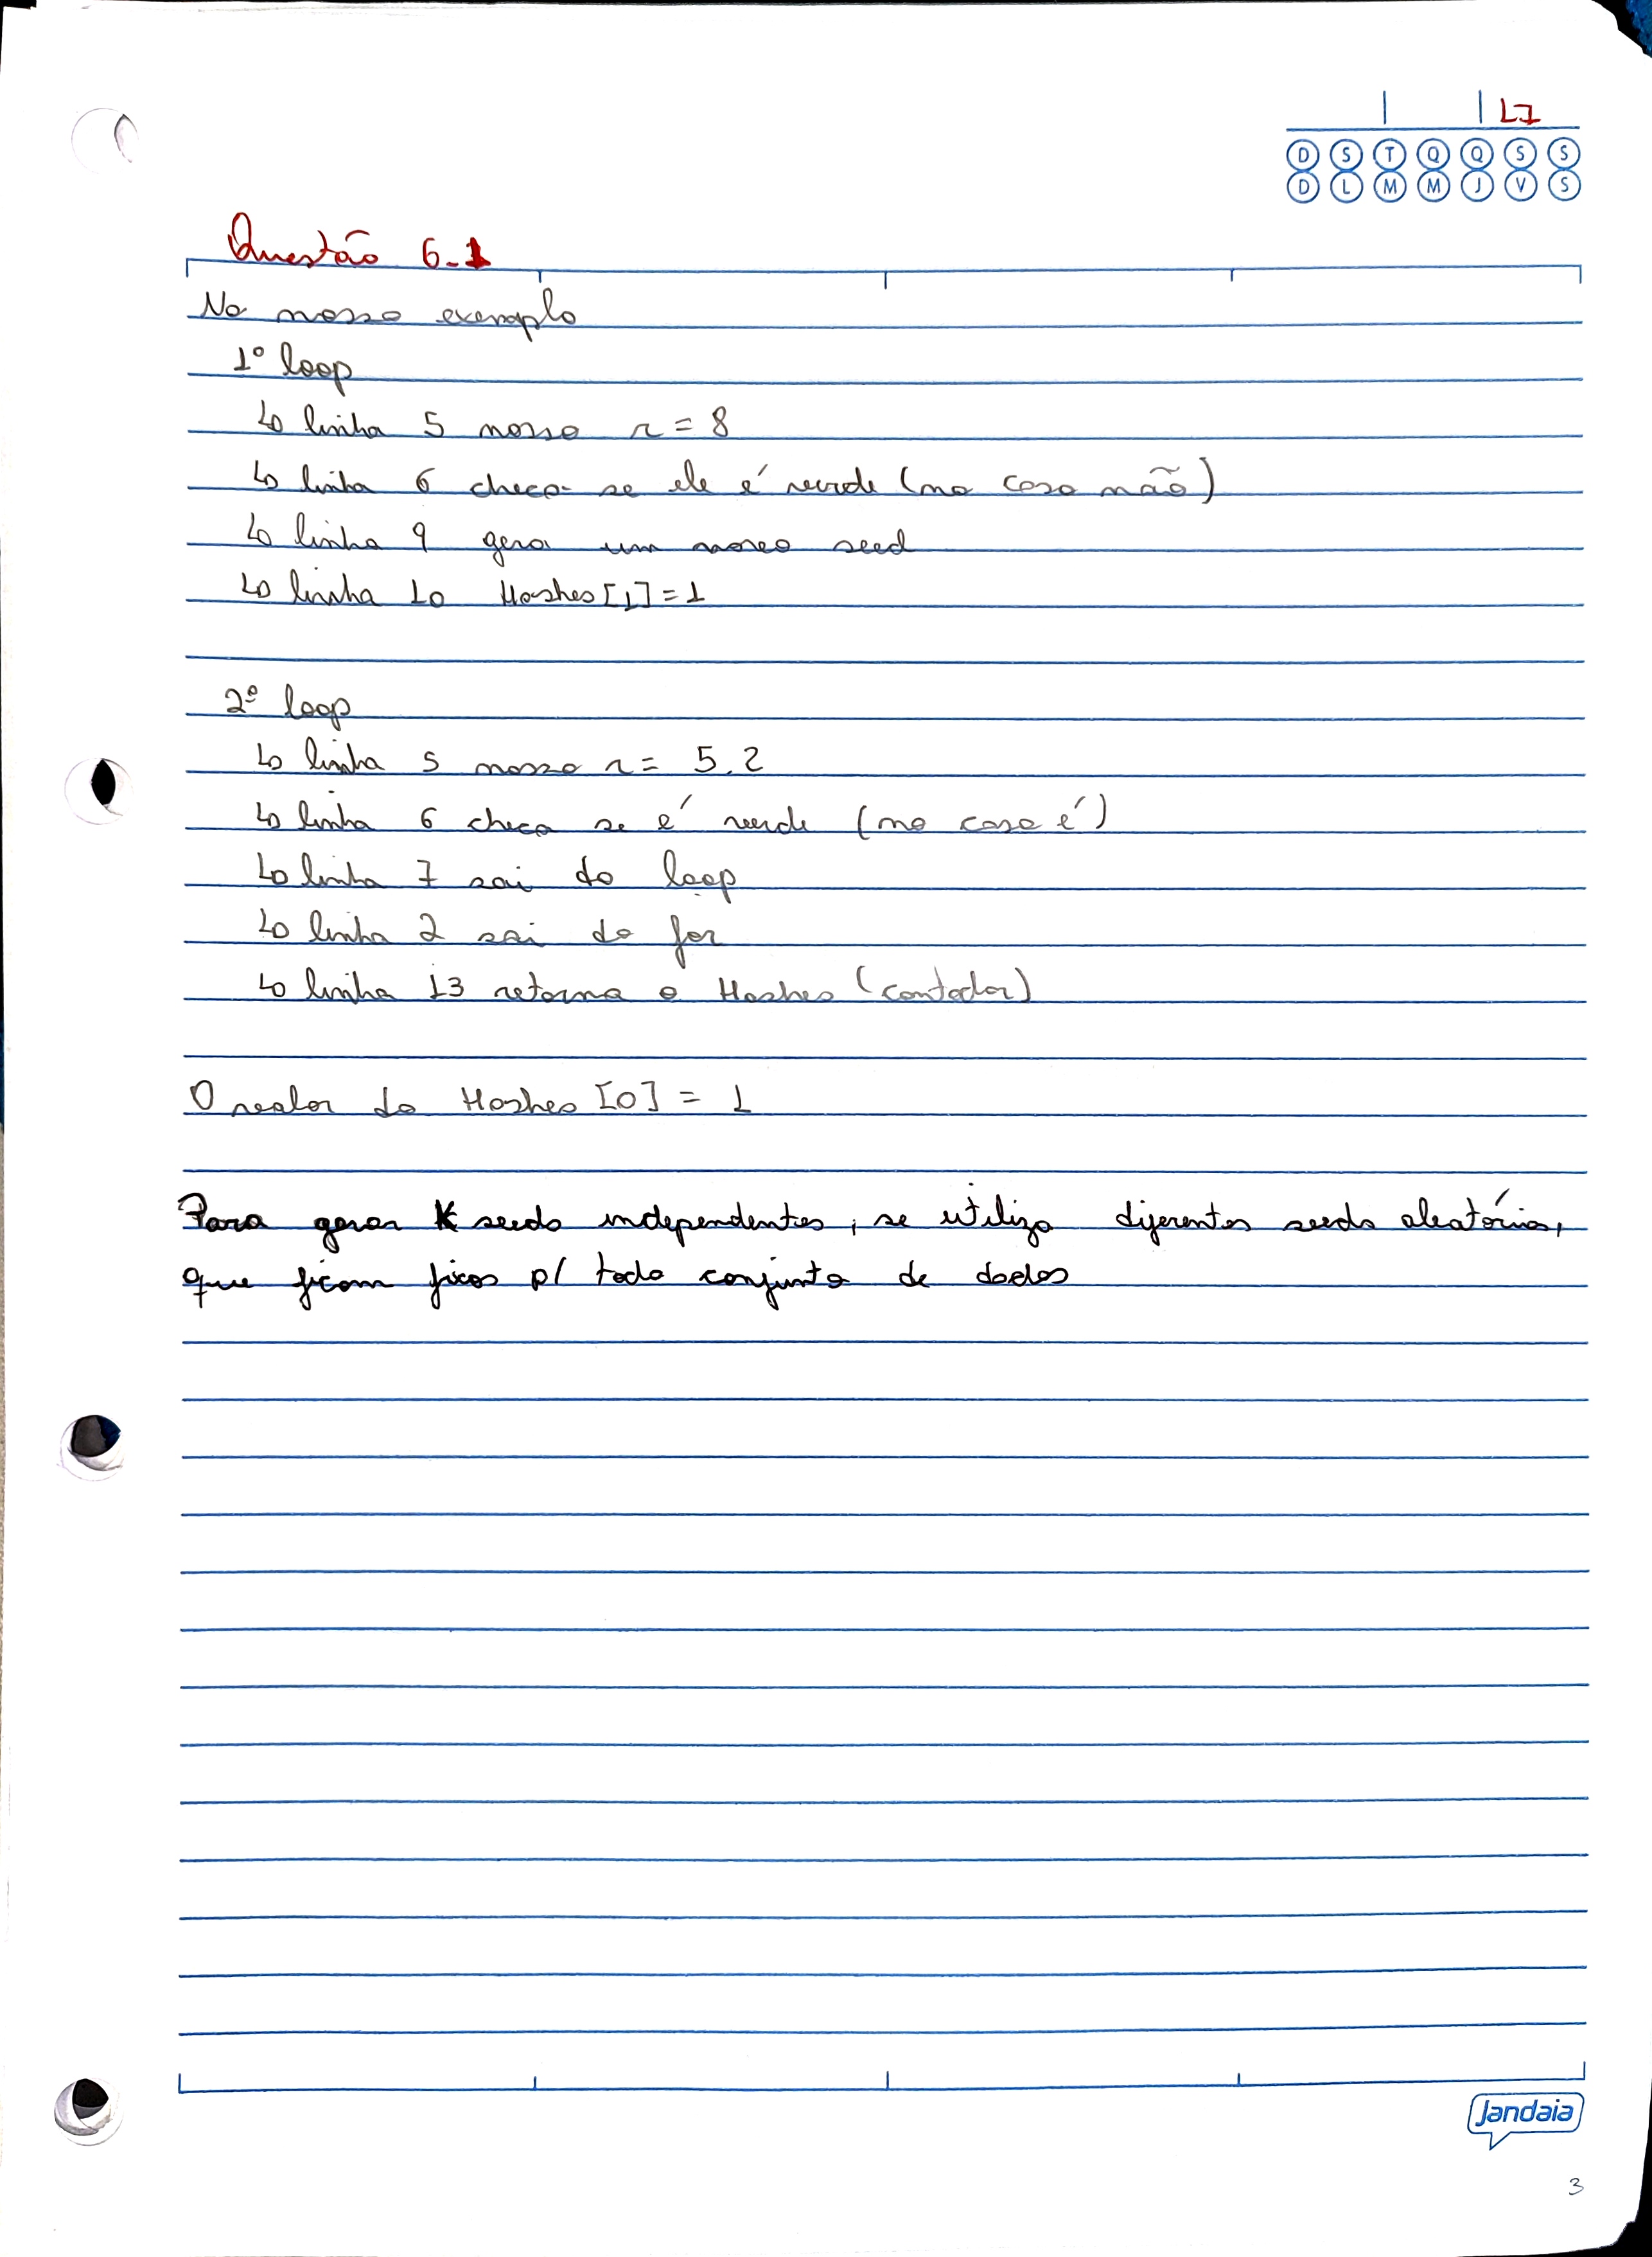 L7
D S T Q Q S S
D L M M J V S
Questão 6.1
No nosso exemplo
1º loop
↳ linha 5 nosso r = 8
↳ linha 6 checa se ele é verde (no caso não)
↳ linha 9 gera um novo seed
↳ linha 10 Hashes[1] = 1
2º loop
↳ linha 5 nosso r = 5.2
↳ linha 6 checa se é verde (no caso é)
↳ linha 7 sai do loop
↳ linha 2 sai do for
↳ linha 13 retorna o Hashes (contador)
O valor do Hashes [0] = 1
Para gerar K seeds independentes, se utiliza diferentes seeds aleatórias,
que ficam fixos p/ todo conjunto de dados
Jandaia
3